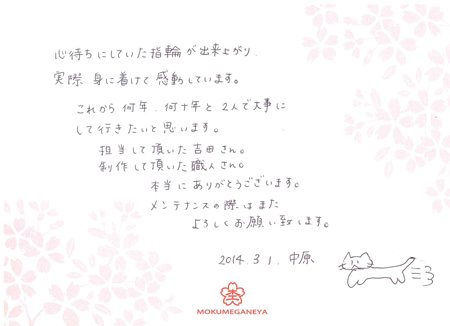 心待ちにしていた指輪が出来上がり、
実際 身に着けて感動しています。
これから何年、何十年と2人で大事に
して行きたいと思います。
担当して頂いた吉田さん。
制作して頂いた職人さん。
本当にありがとうございます。
メンテナンスの際はまた
よろしくお願い致します。
2014.3.1. 中原
MOKUMEGANEYA